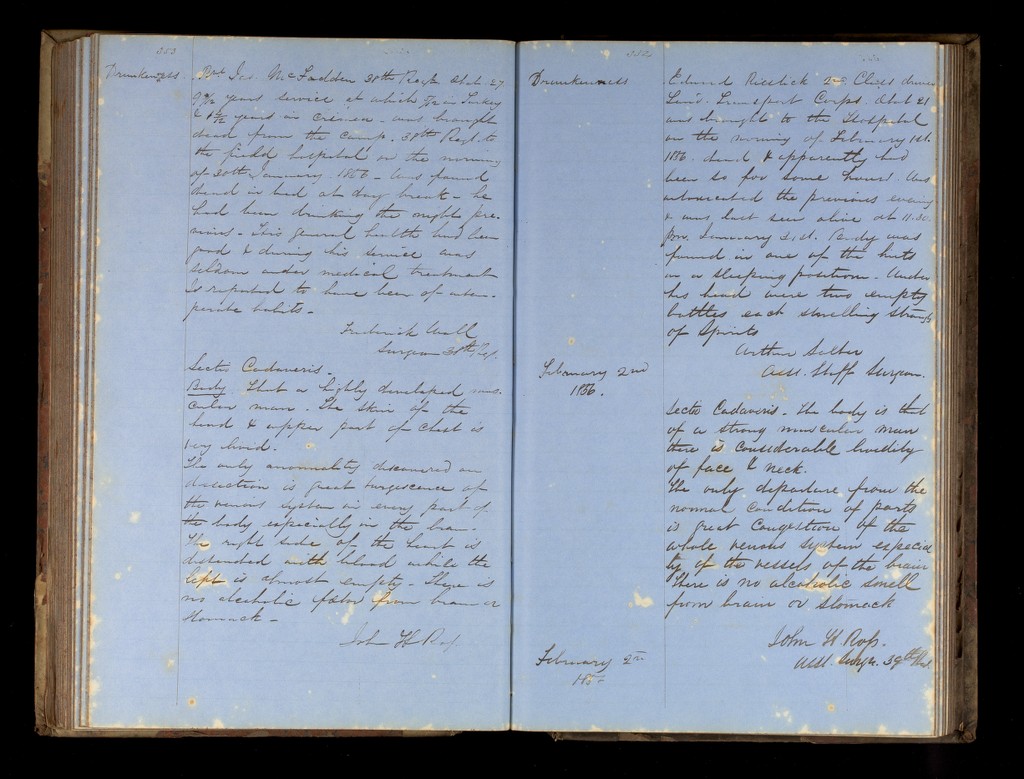 353
Drunkenness
Pvt Jas. McFadden 38th Regt Aetat 27
years service of which in Turkey
& years in Crimea - was brought
dead from the Camp. 38th Regt. to
the field hospital on the morning
of 30th January 1856 - Was found
dead in bed at day break - he
had been drinking the night pre-
vious - His general health had been
good & during his service was
seldom under medical treatment
Is reported to have been of intem-
perate habits -
Frederick Wall
Surgeon 38th Rgt.
Sectio Cadaveris.
Body. That a highly developed mus-
cular man. The skin of the
head & upper part of Chest is
very livid.
The only abnormality discovered on
dissection is great turgescence of
the venous system in every part of
the body especially in the brain.
The right side of the heart is
distended with blood while the
left is almost empty - There is
no alcoholic fœtor from brain or
Stomach -
John H Ross
354
Drunkenness
Edward 2nd Class driver
Land Transport Corps. Aetat 21
was brought to the Hospital
on the morning of February 1st.
1856. dead & apparently had
been so for some hours. Was
intoxicated the previous evening
& was last seen alive at 11.30.
pm. January 31st. Body was
found in one of the huts
in a sleeping position - Under
his head were two empty
bottles each smelling strongly
of Spirits
Arthur
Asst. Staff Surgeon.
February 2nd
1856.
Sectio Cadaveris - The body is that
of a strong muscular man
there is considerable lividity
of face & neck.
The only departure from the
normal condition of parts
is great Congestion of the
whole venous system especial
ly of the vessels of the brain
There is no alcoholic smell
from brain or stomach
John H Ross.
Asst Surgn. 39th Regt.
February 2nd